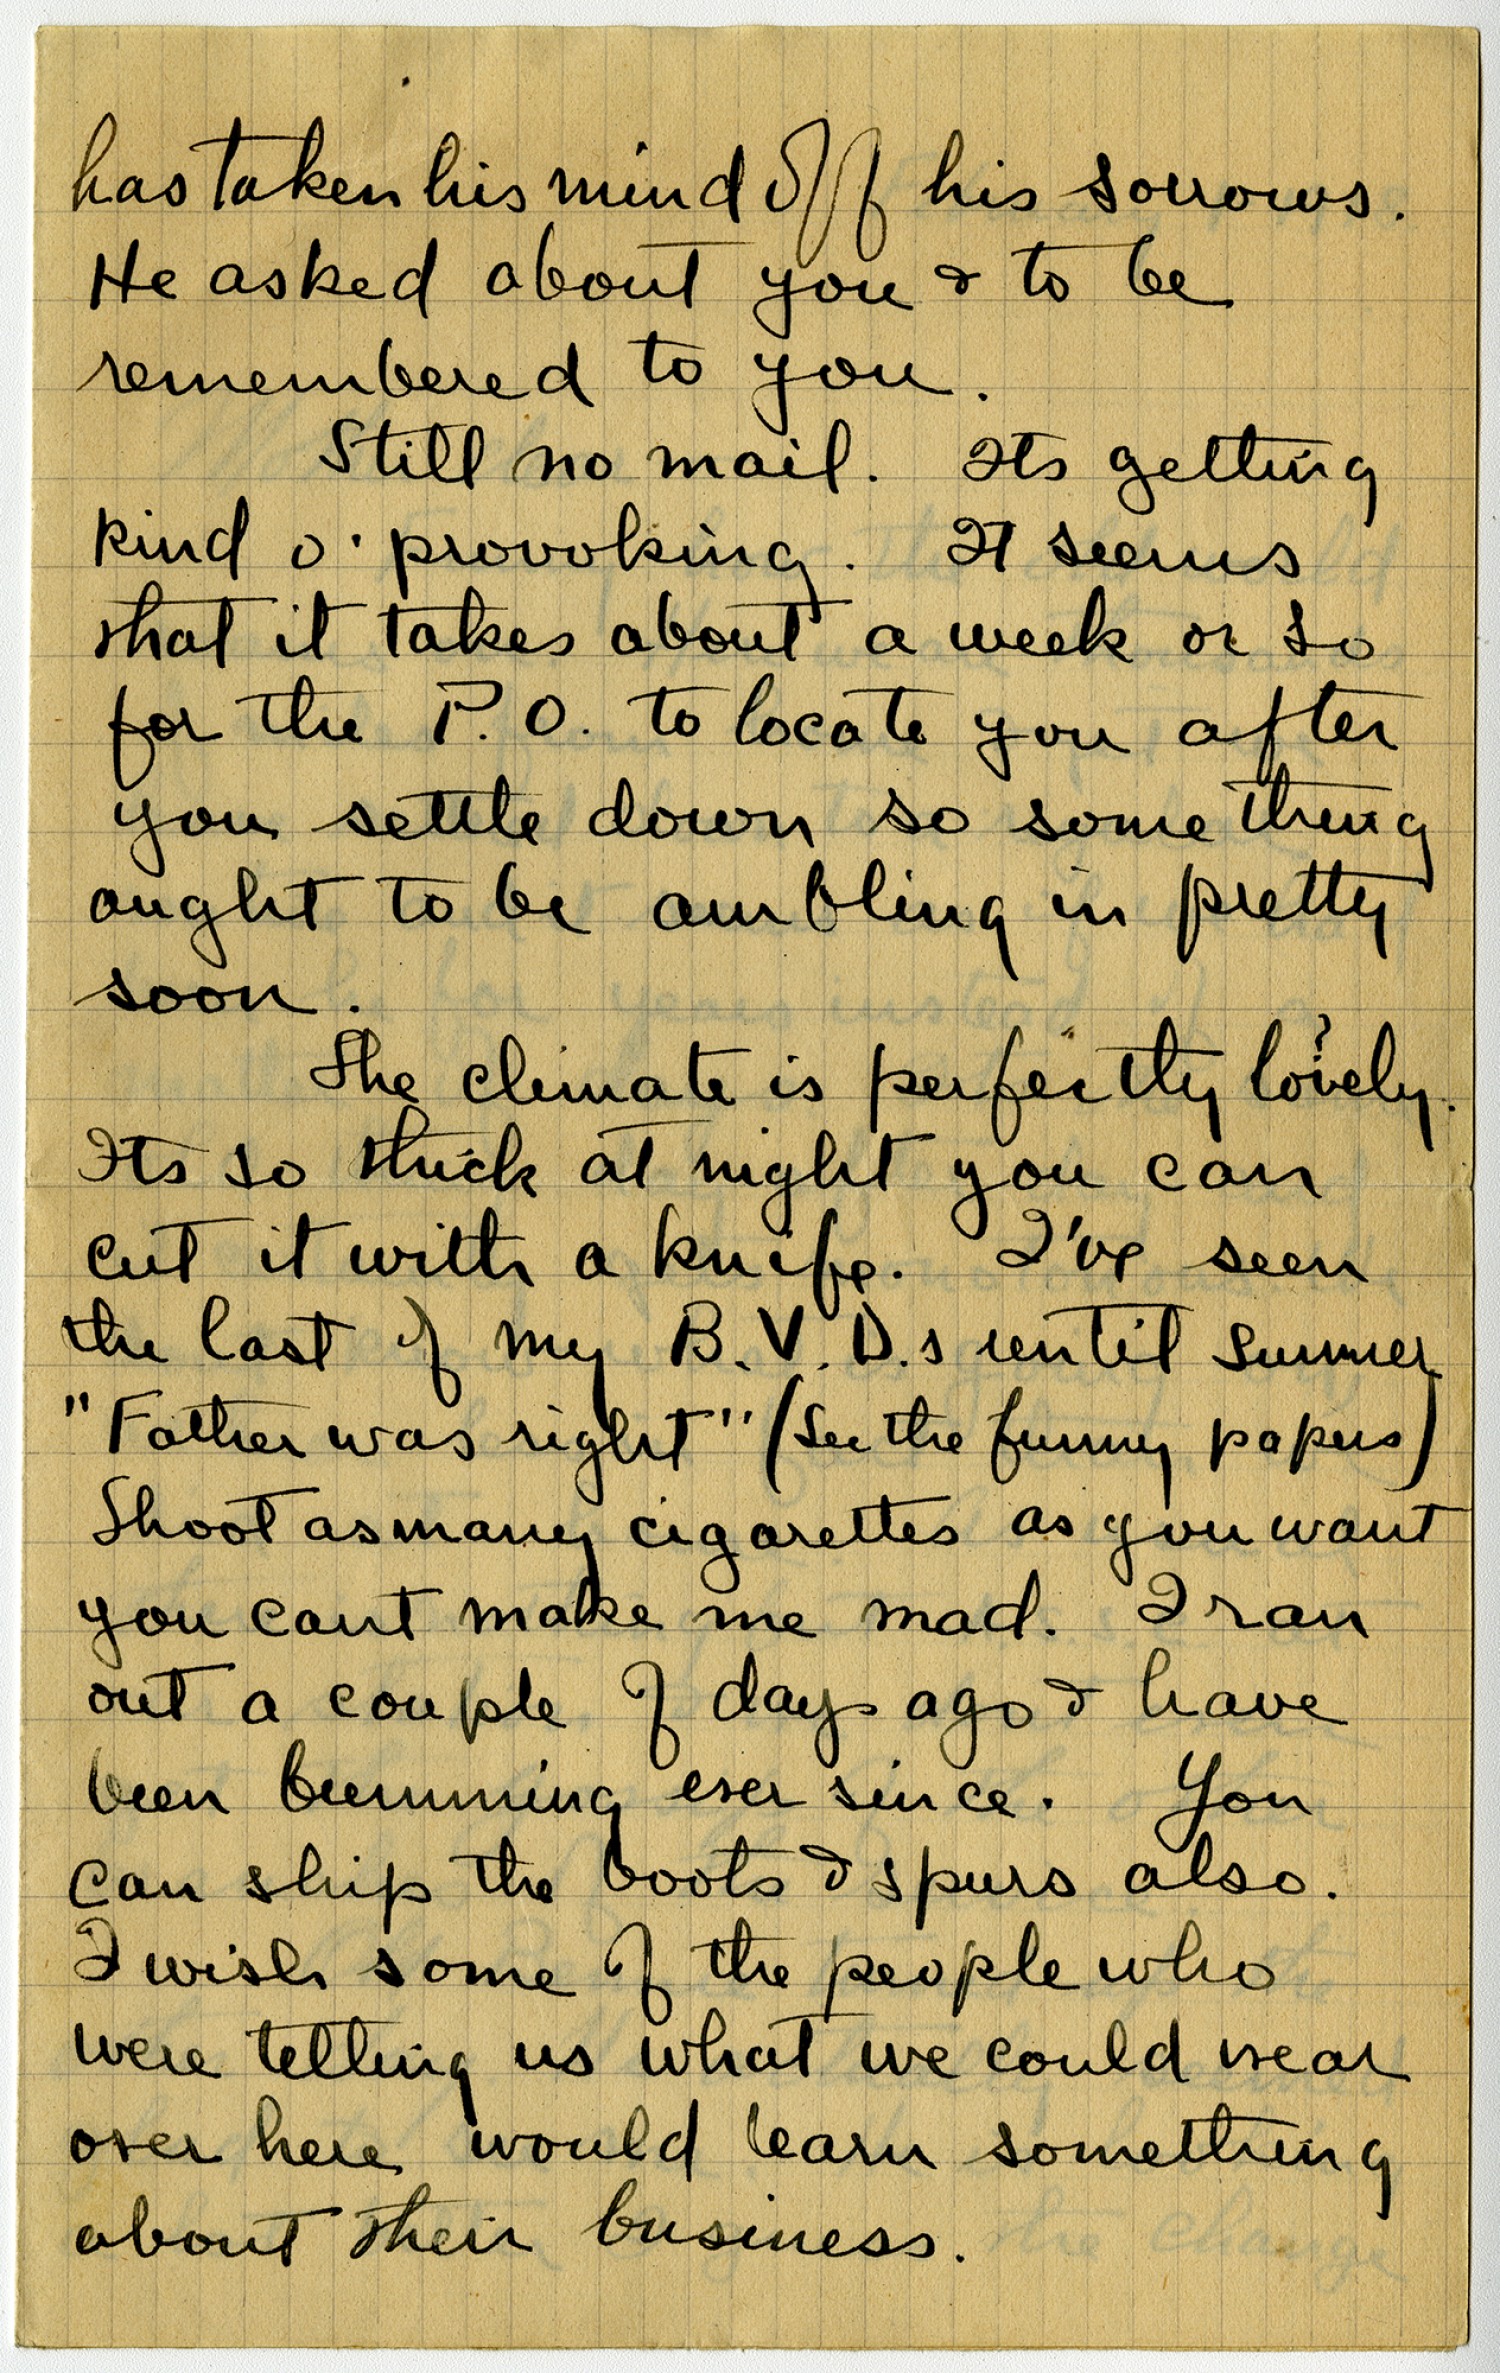 has taken his mind off his sorrows.
He asked about you & to be
remembered to you.
Still no mail. Its getting
kind o' provoking. It seems
that it takes about a week or so
for the P.O. to locate you after
you settle down so some thing
ought to be ambling in pretty
soon.
The climate is perfectly lovely.
?
Its so thick at night you can
cut it with a knife. I've seen
the last of my B.V.D.s until summer
"Father was right" (See the funny papers)
Shoot as many cigarettes as you want
you cant make me mad. I ran
out a couple of days ago & have
been bumming ever since. You
can ship the boots & spurs also.
I wish some of the people who
were telling us what we could wear
over here would learn something
about their business.